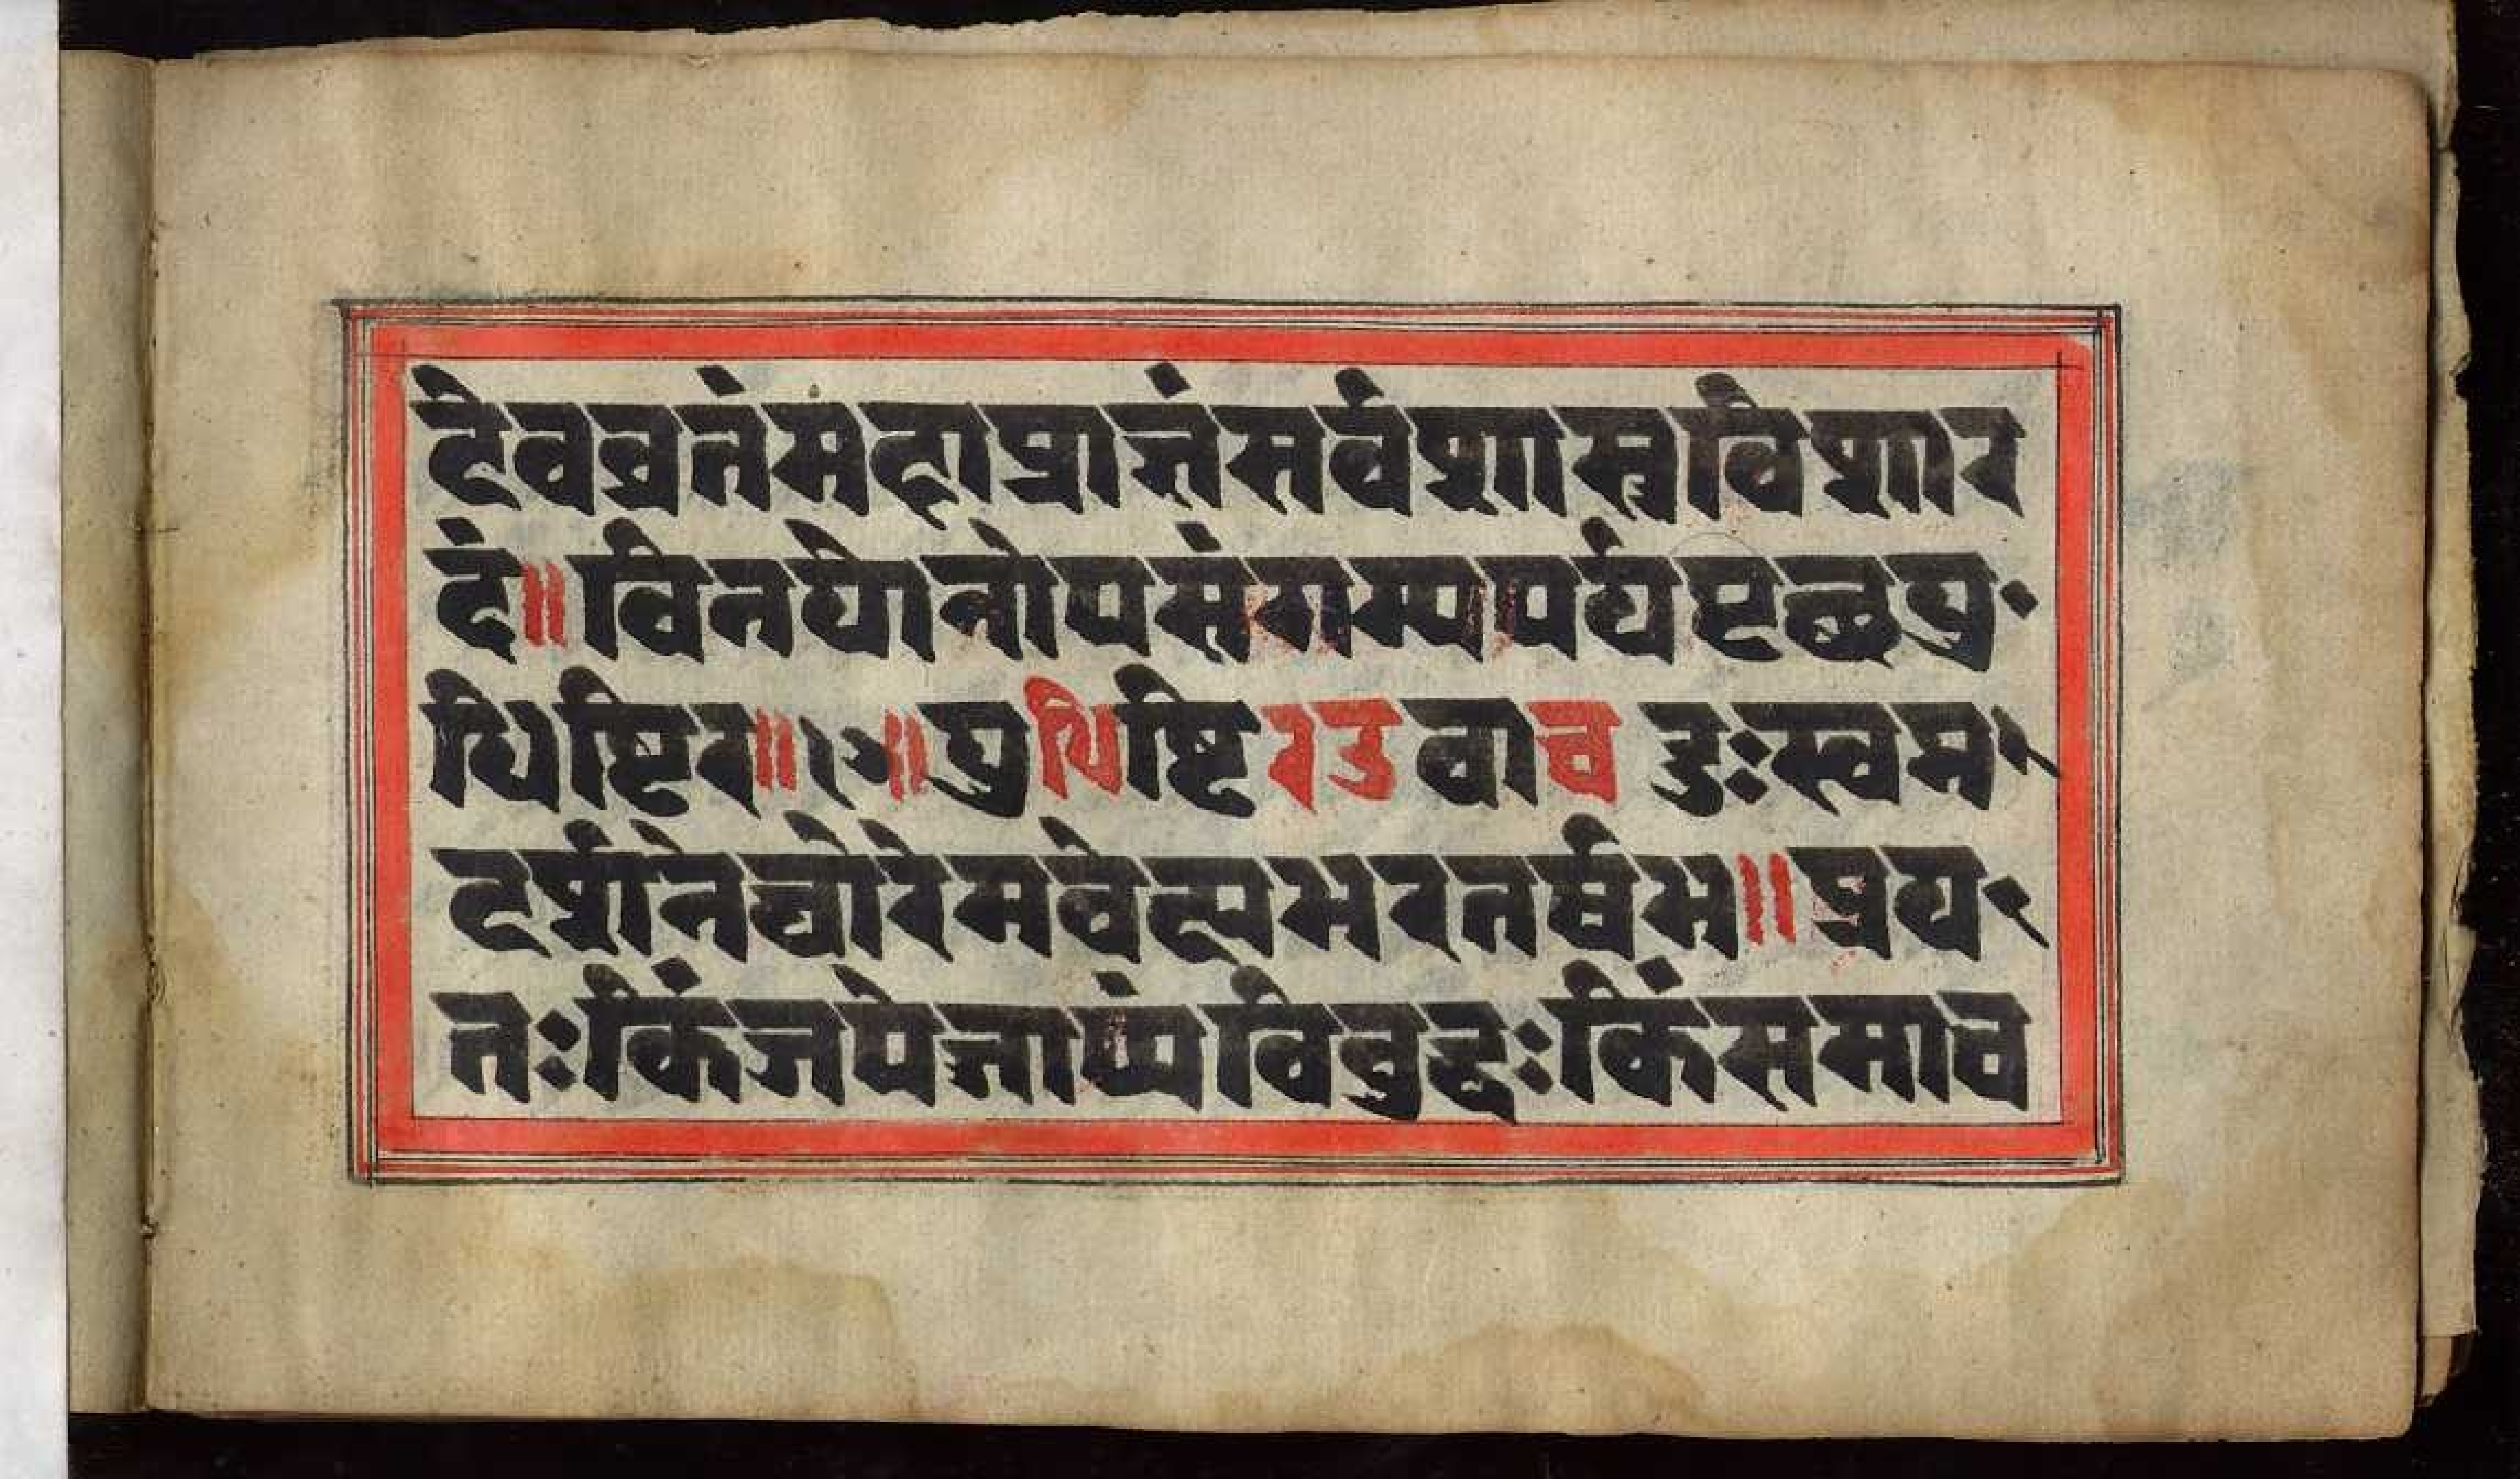 देवव्रतंमहाप्राज्ञंसर्वशास्त्रविशार
दं॥विनयेनोपसंगम्यपर्यपृच्छद्यु
धिष्टिर॥१॥युधिष्टिरउवाच दुःस्वप्न
दर्शनेघोरेमवेक्ष्यभरतर्षभ॥प्रय
तःकिंजपेज्जाप्यंविबुद्धःकिंसमाच